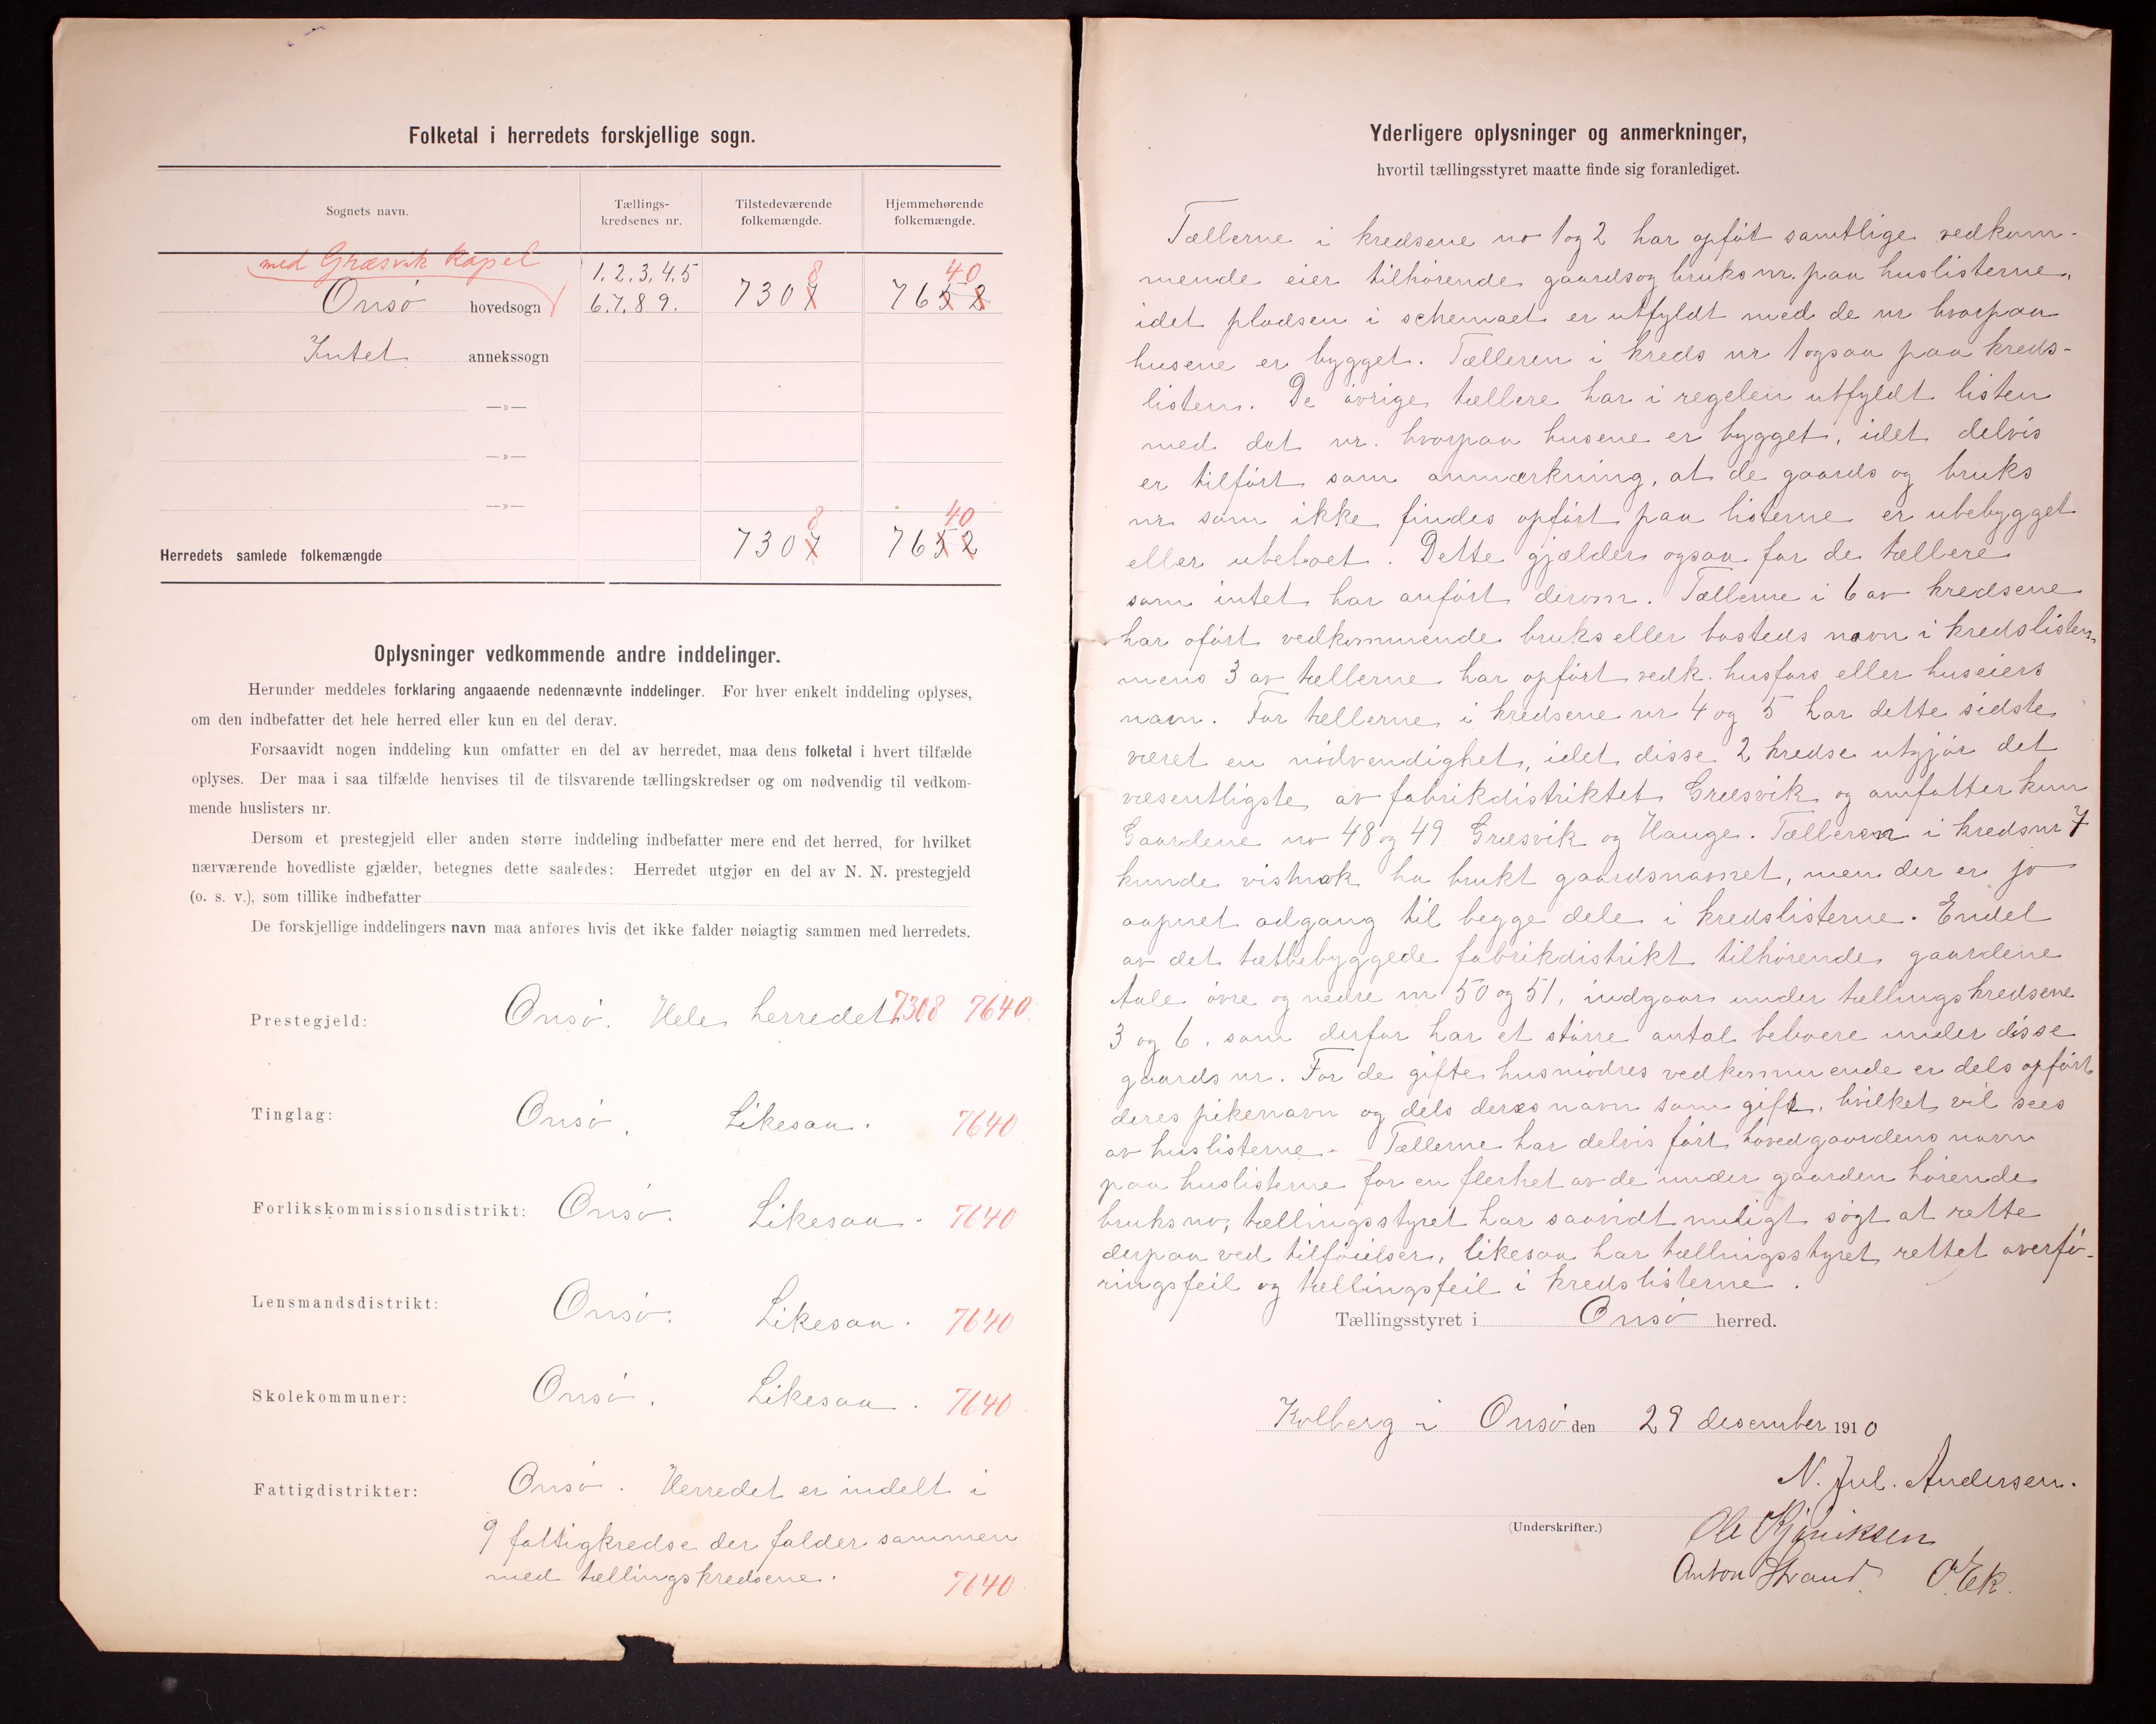 Folketal i herredets forskjellige sogn.
Sognets navn.
Tællings-
kredsenes nr.
Tilstedeværende
folkemængde.
Hjemmehørende
folkemængde.
med Græsvik Kapel
1.2.3.4.5
8
40
Onsø hovedsogn 6.7.8 9. 7307 7652
Intet annekssogn
—»—
—»—
—»—
8
40
Herredets samlede folkemængde 7307 7652
Oplysninger vedkommende andre inddelinger.
Herunder meddeles forklaring angaaende nedennævnte inddelinger. For hver enkelt inddeling oplyses,
om den indbefatter det hele herred eller kun en del derav.
Forsaavidt nogen inddeling kun omfatter en del av herredet, maa dens folketal i hvert tilfælde
oplyses. Der maa i saa tilfælde henvises til de tilsvarende tællingskredser og om nødvendig til vedkom-
mende huslisters nr.
Dersom et prestegjeld eller anden større inddeling indbefatter mere end det herred, for hvilket
nærværende hovedliste gjælder, betegnes dette saaledes: Herredet utgjør en del av N. N. prestegjeld
(o. s. v.), som tillike indbefatter
De forskjellige inddelingers navn maa anføres hvis det ikke falder nøiagtig sammen med herredets.
Prestegjeld: Onsø. Hele herredet. 7308 7640.
Tinglag: Onsø. Likesaa. 7640
Forlikskommissionsdistrikt: Onsø. Likesaa. 7640
Lensmandsdistrikt: Onsø. Likesaa. 7640
Skolekommuner: Onsø. Likesaa. 7640
Fattigdistrikter: Onsø. Herredet er indelt i
9 fattigkredse der falder sammen
med tællingskredsene.
7640
Yderligere oplysninger og anmerkninger,
hvortil tællingsstyret maatte finde sig foranlediget.
Tællerne i kredsene no 1 og 2 har opføt samtlige vedkom-
mende eier tilhørende gaards og bruks nr. paa huslisterne,
idet pladsen i schemaet er utfyldt med de nr hvorpaa
husene er bygget. Tælleren i kreds nr 1 ogsaa paa kreds-
listen. De øvrige tællere har i regelen utfyldt listen
med det nr. hvorpaa husene er bygget, idet delvis
er tilført som anmærkning, at de gaards og bruks
nr som ikke findes opført paa listerne er ubebygget
eller ubeboet. Dette gjælder ogsaa for de tællere
som intet har anført derom. Tællerne i 6 av kredsene
har oført vedkommende bruks eller bosteds navn i kredslisten,
mens 3 av tællerne har opført vedk. husfars eller huseiers
navn. For tællerne i kredsene nr 4 og 5 har dette sidste
været en nødvendighet, idet disse 2 kredse utgjør det
væsentligste av fabrikdistriktet Græsvik og omfatter kun
Gaardene no 48 og 49 Græsvik og Hauge. Tælleren i kreds nr 7
kunde vistnok ha brukt gaardsnavnet, men der er jo
aapnet adgang til begge dele i kredslisterne. Endel
av det tætbebyggede fabrikdistrikt tilhørende gaardene
Aale øvre og nedre nr 50 og 51, indgaar under tællingskredsene
3 og 6, som derfor har et større antal beboere under disse
gaards nr. For de gifte husmødres vedkommuende er dels opført
deres pikenavn og dels deres navn som gift, hvilket vil sees
av huslisterne. Tællerne har delvis ført hovedgaardens navn
paa huslisterne for en flerhet av de under gaarden hørende
bruks no, tællingsstyret har saavidt muligt søgt at rette
derpaa ved tilføielser, likesaa har tællingsstyret rettet overfø-
ringsfeil og tællingsfeil i kredslisterne.
Tællingsstyret i Onsø herred.
Kolberg i Onsø den 29 desember 1910
N. Jul. Andersen.
(Underskrifter.) Ole
Anton Strand. O Ek.